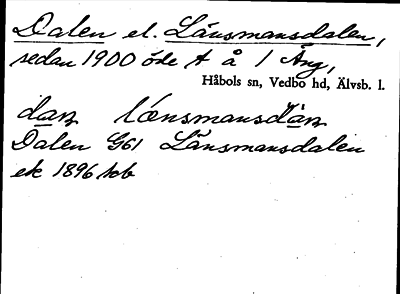 Dalen el. Länsmansdalen,
sedan 1900 öde t å 1 Äng,
Håbols sn, Vedbo hd, Älvsb. l.
dan länsmansdan
Dalen G61 Länsmansdalen
ek 1896 hb